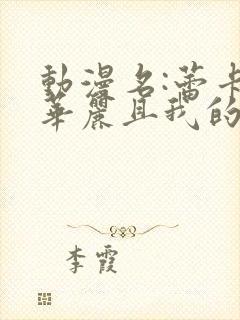 動漫名:蕾卡
華麗且我的
李霞